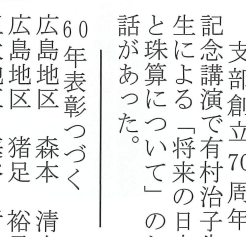 支部創立70周年
記念講演で有村治子
生による「将来の日
と珠算について」の
話があった。
60年表彰つづく
広島地区 森本 清
広島地区 猪足 裕